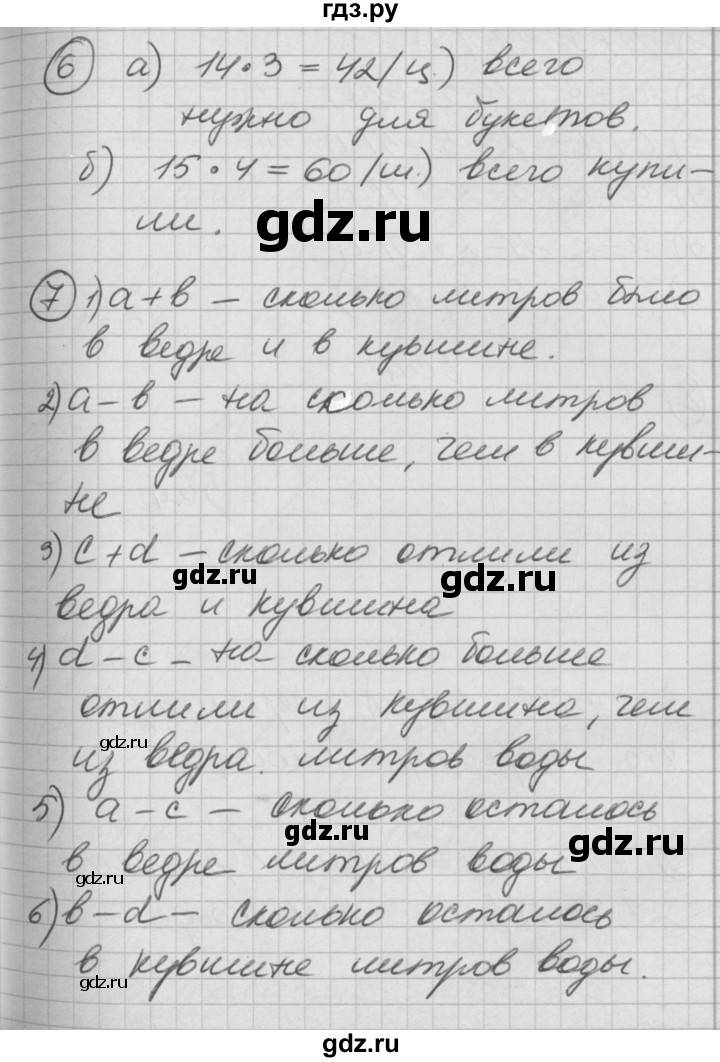 гдз.ру
6 а) 14·3=42(ц.) всего
нужно для букетов.
б) 15·4=60(ш.) всего купи-
ли.
gdz.ru
7 1) a+b – сколько литров было
в ведре и в кувшине.
2) a-b – на сколько литров
в ведре больше, чем в кувши-
не
3) c+d – сколько отлили из
gdz.ru
gdz.ru
ведра и кувшина
4) d-c – на сколько больше
отлили из кувшина, чем
gdz.ru
из ведра. литров воды
5) a-c – сколько осталось
gdz.ru
gdz.ru
в ведре литров воды
gdz.ru
6) b-d – сколько осталось
в кувшине литров воды.
gdz.ru
gdz.ru